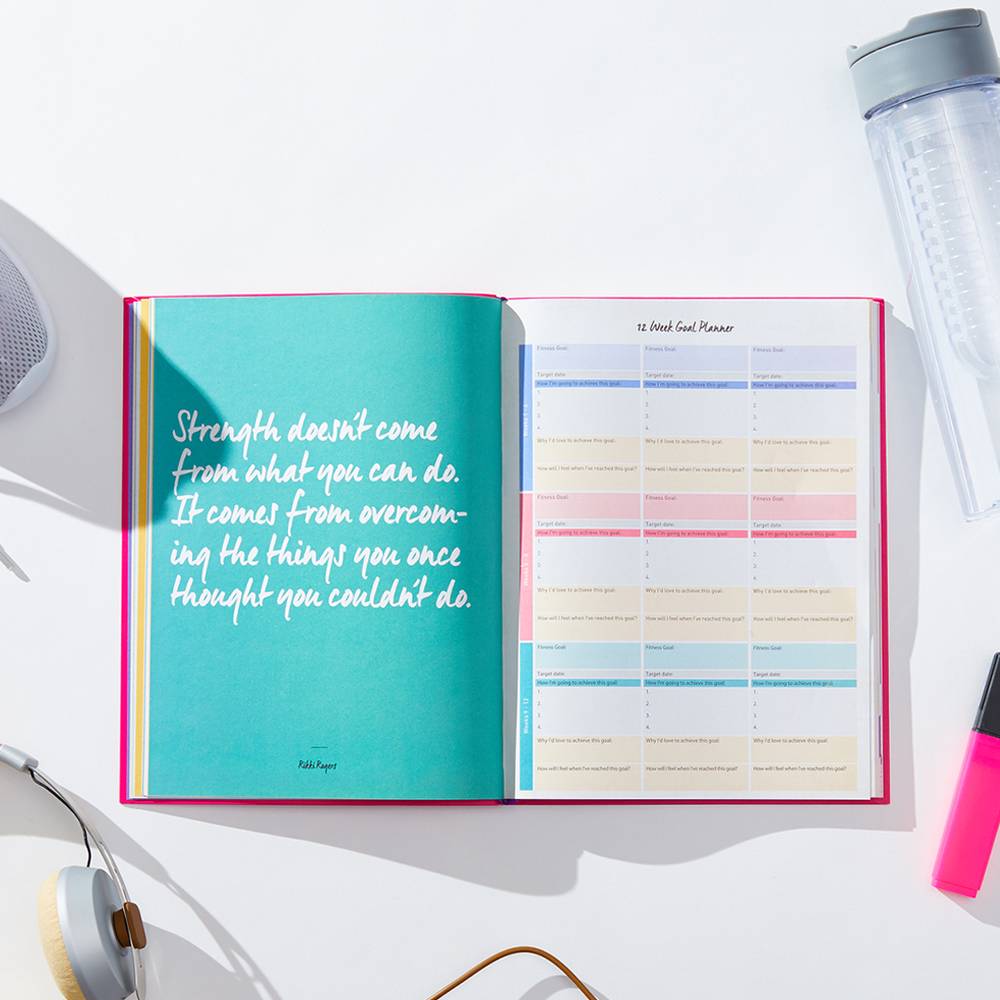 Strength doesn't come
from what you can do.
It comes from overcom-
ing the things you once
thought you couldn't do.
Rikki Rogers
12 Week Goal Planner
Fitness Goal: Fitness Goal: Fitness Goal:
Target date: Target date: Target date:
How I'm going to achieve this goal: How I'm going to achieve this goal: How I'm going to achieve this goal:
1. 1. 1.
2. 2. 2.
3. 3. 3.
4. 4. 4.
Why I'd love to achieve this goal: Why I'd love to achieve this goal: Why I'd love to achieve this goal:
How will I feel when I've reached this goal? How will I feel when I've reached this goal? How will I feel when I've reached this goal?
Weeks 1 - 4
Fitness Goal: Fitness Goal: Fitness Goal:
Target date: Target date: Target date:
How I'm going to achieve this goal: How I'm going to achieve this goal: How I'm going to achieve this goal:
1. 1. 1.
2. 2. 2.
3. 3. 3.
4. 4. 4.
Why I'd love to achieve this goal: Why I'd love to achieve this goal: Why I'd love to achieve this goal:
How will I feel when I've reached this goal? How will I feel when I've reached this goal? How will I feel when I've reached this goal?
Weeks 5 - 8
Fitness Goal: Fitness Goal: Fitness Goal:
Target date: Target date: Target date:
How I'm going to achieve this goal: How I'm going to achieve this goal: How I'm going to achieve this goal:
1. 1. 1.
2. 2. 2.
3. 3. 3.
4. 4. 4.
Why I'd love to achieve this goal: Why I'd love to achieve this goal: Why I'd love to achieve this goal:
How will I feel when I've reached this goal? How will I feel when I've reached this goal? How will I feel when I've reached this goal?
Weeks 9 - 12